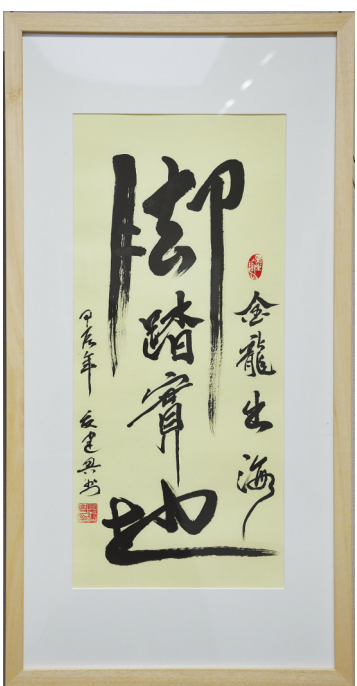 金龍出海
脚踏實地
甲辰年